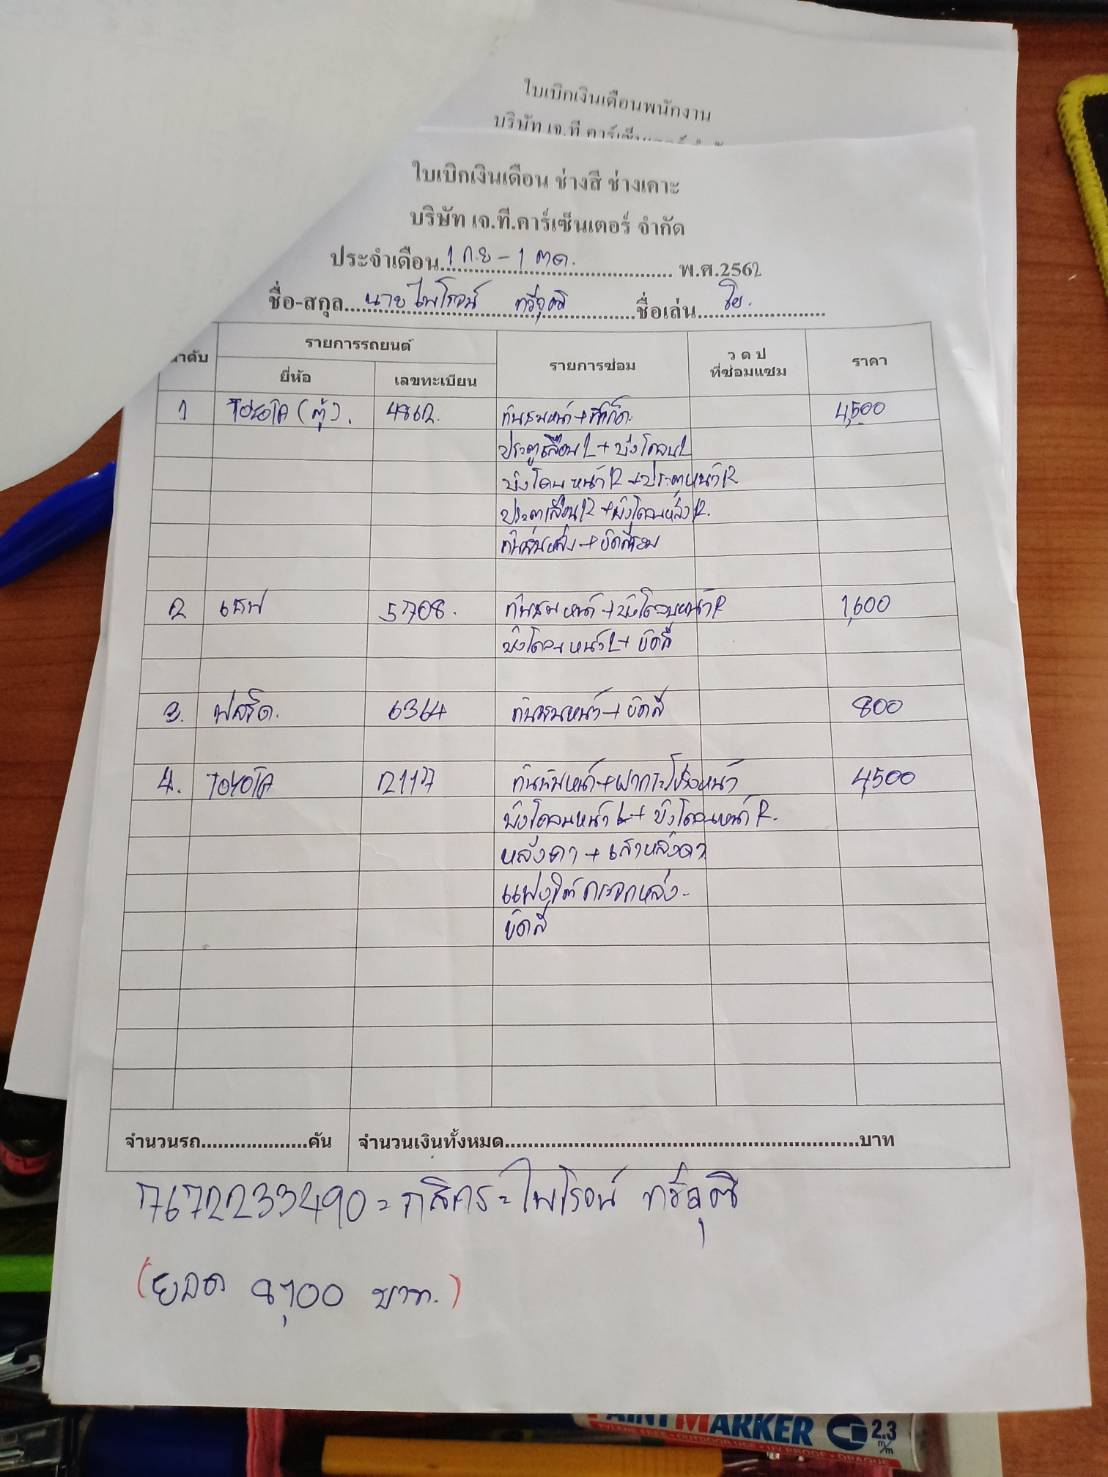 ใบเบิกเงินเดือนพนักงาน
บริษัท เจ.ที คาร์เซ็นเตอร์ จำกัด
ใบเบิกเงินเดือน ช่างสี ช่างเคาะ
บริษัท เจ.ที.คาร์เซ็นเตอร์ จำกัด
ประจำเดือน 1 ก.ย - 1 ตค. พ.ศ.2562
ชื่อ-สกุล นายไพโรจน์ ชื่อเล่น
ลำดับ รายการรถยนต์ รายการซ่อม ว ด ป ที่ซ่อมแซม ราคา
ยี่ห้อ เลขทะเบียน
1 TOYOTA (ตู้). 4862. กันชนหน้า + 4,500
ประตูเลื่อน L + บังโคลน L
บังโคลนหน้า R + ประตูหน้า R
ประตูเลื่อน R + บังโคลนหลัง R.
กันชนหลัง + ขัดสีรอบ
2 5708. กันชนหน้า + บังโคลนหน้า R 1,600
บังโคลนหน้า L + ขัดสี
3. 6364 กันชนหน้า + ขัดสี 800
4. TOYOTA 2117 กันชนหน้า + ฝากระโปรงหน้า 4,500
บังโคลนหน้า L + บังโคลนหน้า R.
หลังคา + เสาหลังคา
แผงใต้กระจกหลัง
ขัดสี
จำนวนรถ คัน จำนวนเงินทั้งหมด บาท
7672233490 = กสิกร = ไพโรจน์
(ยอด 8,700 บาท.)
PAINT MARKER 2.3 m/m